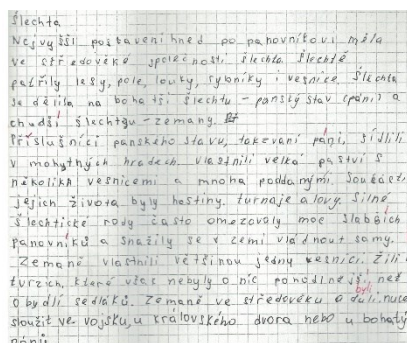 Šlechta
Nejvyšší postavení hned po panovníkovi měla
ve středověké společnosti šlechta šlechtě
patřily lesy, pole, louky, rybníky i vesnice šlechta
se dělila na bohatší šlechtu - panský stav (páni) a
chudší šlechtu - zemany.
Příslušníci panského stavu, takzvaní páni, sídlili
v mohytných hradech, vlastnili velká panství s
několika vesnicemi a mnoha poddanými. Součástí
jejich života byly hostiny, turnaje a lovy. Silné
šlechtické rody často omezovaly moc slabších
panovníků a snažily se v zemi vládnout samy.
Zemané vlastnili většinou jednu vesnici. Žili v
tvrzích, které však nebyly o nic pohodlnejší než
obydlí sedláků. Zemané ve středověku byli nuce
sloužit ve vojsku, u královského dvora nebo u bohatý